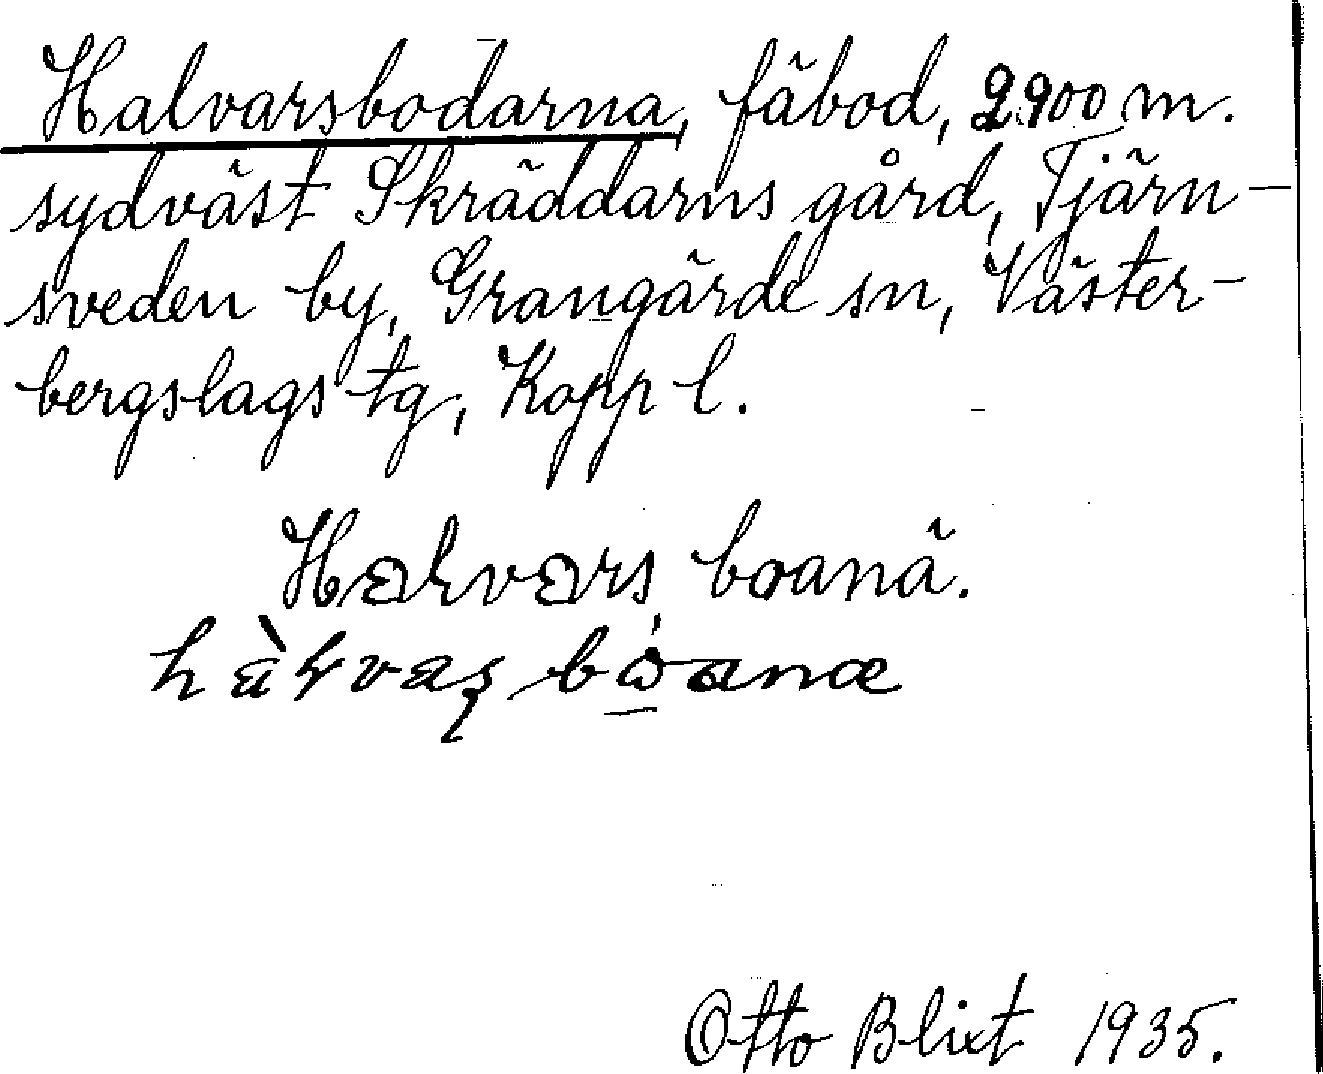 Halvarsbodarna, fäbod, 2900 m.
sydväst Skräddarns gård, Tjärn-
sveden by, Grangärde sn, Väster-
bergslags tg, Kopp l.
Halvars boanä.
Otto Blixt 1935.